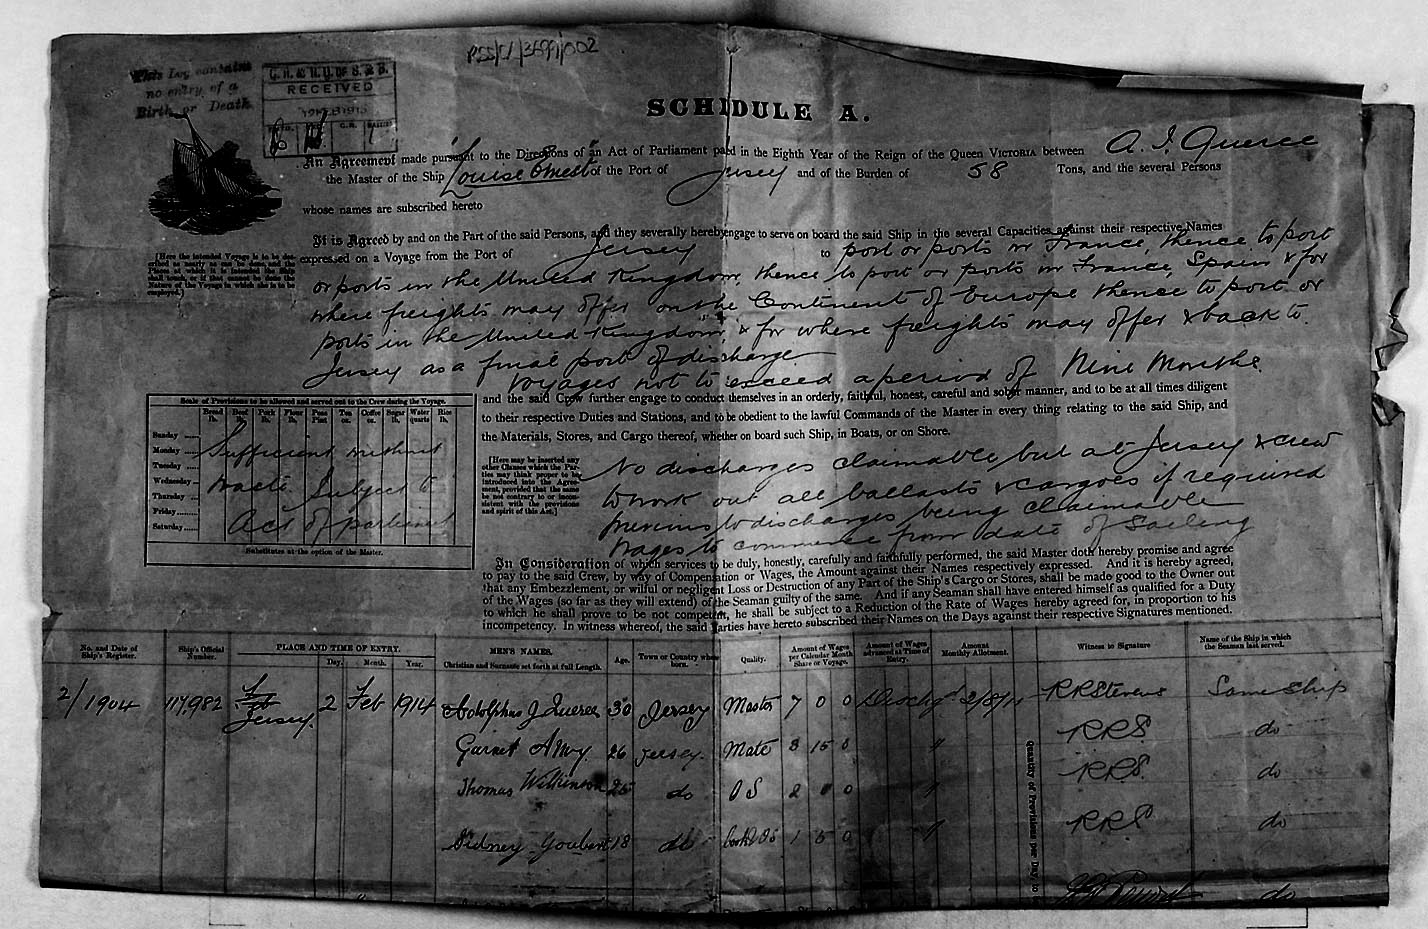 RSS/CL/3699/002
This Log contains
no entry of a
Birth or Death
RECEIVED
SCHEDULE A.
An Agreement made pursuant to the Directions of an Act of Parliament passed in the Eighth Year of the Reign of the Queen VICTORIA between A. J. Queree
the Master of the Ship "Louise Ernest" of the Port of Jersey and of the Burden of 58 Tons, and the several Persons
whose names are subscribed hereto
It is Agreed by and on the Part of the said Persons, and they severally hereby engage to serve on board the said Ship in the several Capacities against their respective Names
expressed on a Voyage from the Port of Jersey to port or ports in France, thence to port
or ports in the United Kingdom, thence to port or ports in France, Spain & for
where freights may offer on the Continent of Europe thence to port or
ports in the United Kingdom, & for where freights may offer & back to
Jersey as a final port of discharge
Voyages not to exceed a period of Nine Months
[Here the intended Voyage is to be des-
cribed as nearly as can be done, and the
Places at which it is intended the Ship
shall touch, or if that cannot be done the
Nature of the Voyage in which she is to be
employed.]
and the said Crew further engage to conduct themselves in an orderly, faithful, honest, careful and sober manner, and to be at all times diligent
to their respective Duties and Stations, and to be obedient to the lawful Commands of the Master in every thing relating to the said Ship, and
the Materials, Stores, and Cargo thereof, whether on board such Ship, in Boats, or on Shore.
Scale of Provisions to be allowed and served out to the Crew during the Voyage.
Bread lb. Beef lb. Pork lb. Flour lb. Peas Pint Tea oz. Coffee oz. Sugar lb. Water quarts Rice lb.
Sunday
Monday
Tuesday
Wednesday
Thursday
Friday
Saturday
Sufficient without
waste Subject to
Act of parliament
Substitutes at the option of the Master.
[Here may be inserted any
other Clauses which the Par-
ties may think proper to be
introduced into the Agree-
ment, provided that the same
be not contrary to or incon-
sistent with the provisions
and spirit of this Act.]
No discharges claimable but at Jersey & crew
to work out all ballasts & cargoes if required
previous to discharges being claimable
Wages to commence from date of Sailing
In Consideration of which services to be duly, honestly, carefully and faithfully performed, the said Master doth hereby promise and agree
to pay to the said Crew, by way of Compensation or Wages, the Amount against their Names respectively expressed. And it is hereby agreed,
that any Embezzlement, or wilful or negligent Loss or Destruction of any Part of the Ship's Cargo or Stores, shall be made good to the Owner out
of the Wages (so far as they will extend) of the Seaman guilty of the same. And if any Seaman shall have entered himself as qualified for a Duty
to which he shall prove to be not competent, he shall be subject to a Reduction of the Rate of Wages hereby agreed for, in proportion to his
incompetency. In witness whereof, the said Parties have hereto subscribed their Names on the Days against their respective Signatures mentioned.
No. and Date of Ship's Register. Ship's Official Number. PLACE AND TIME OF ENTRY. Day. Month. Year. MEN'S NAMES. Christian and Surname set forth at full Length. Age. Town or Country where born. Quality. Amount of Wages per Calendar Month Share or Voyage. Amount of Wages advanced at Time of Entry. Amount Monthly Allotment. Witness to Signature Name of the Ship in which the Seaman last served.
2/1904 117,982 Jersey. 2 Feb 1914 Adolphus J Queree 30 Jersey Master 7 0 0 RR Stevens Same Ship
Garnet Amy. 26 Jersey. Mate 3 15 0 " RRS. do
Thomas Wilkinson 25 do OS 2 0 " RRS. do
Sidney Goubert 18 do Cook & OS 1 5 0 " RRS do
quantity of Provisions per Day, to
do